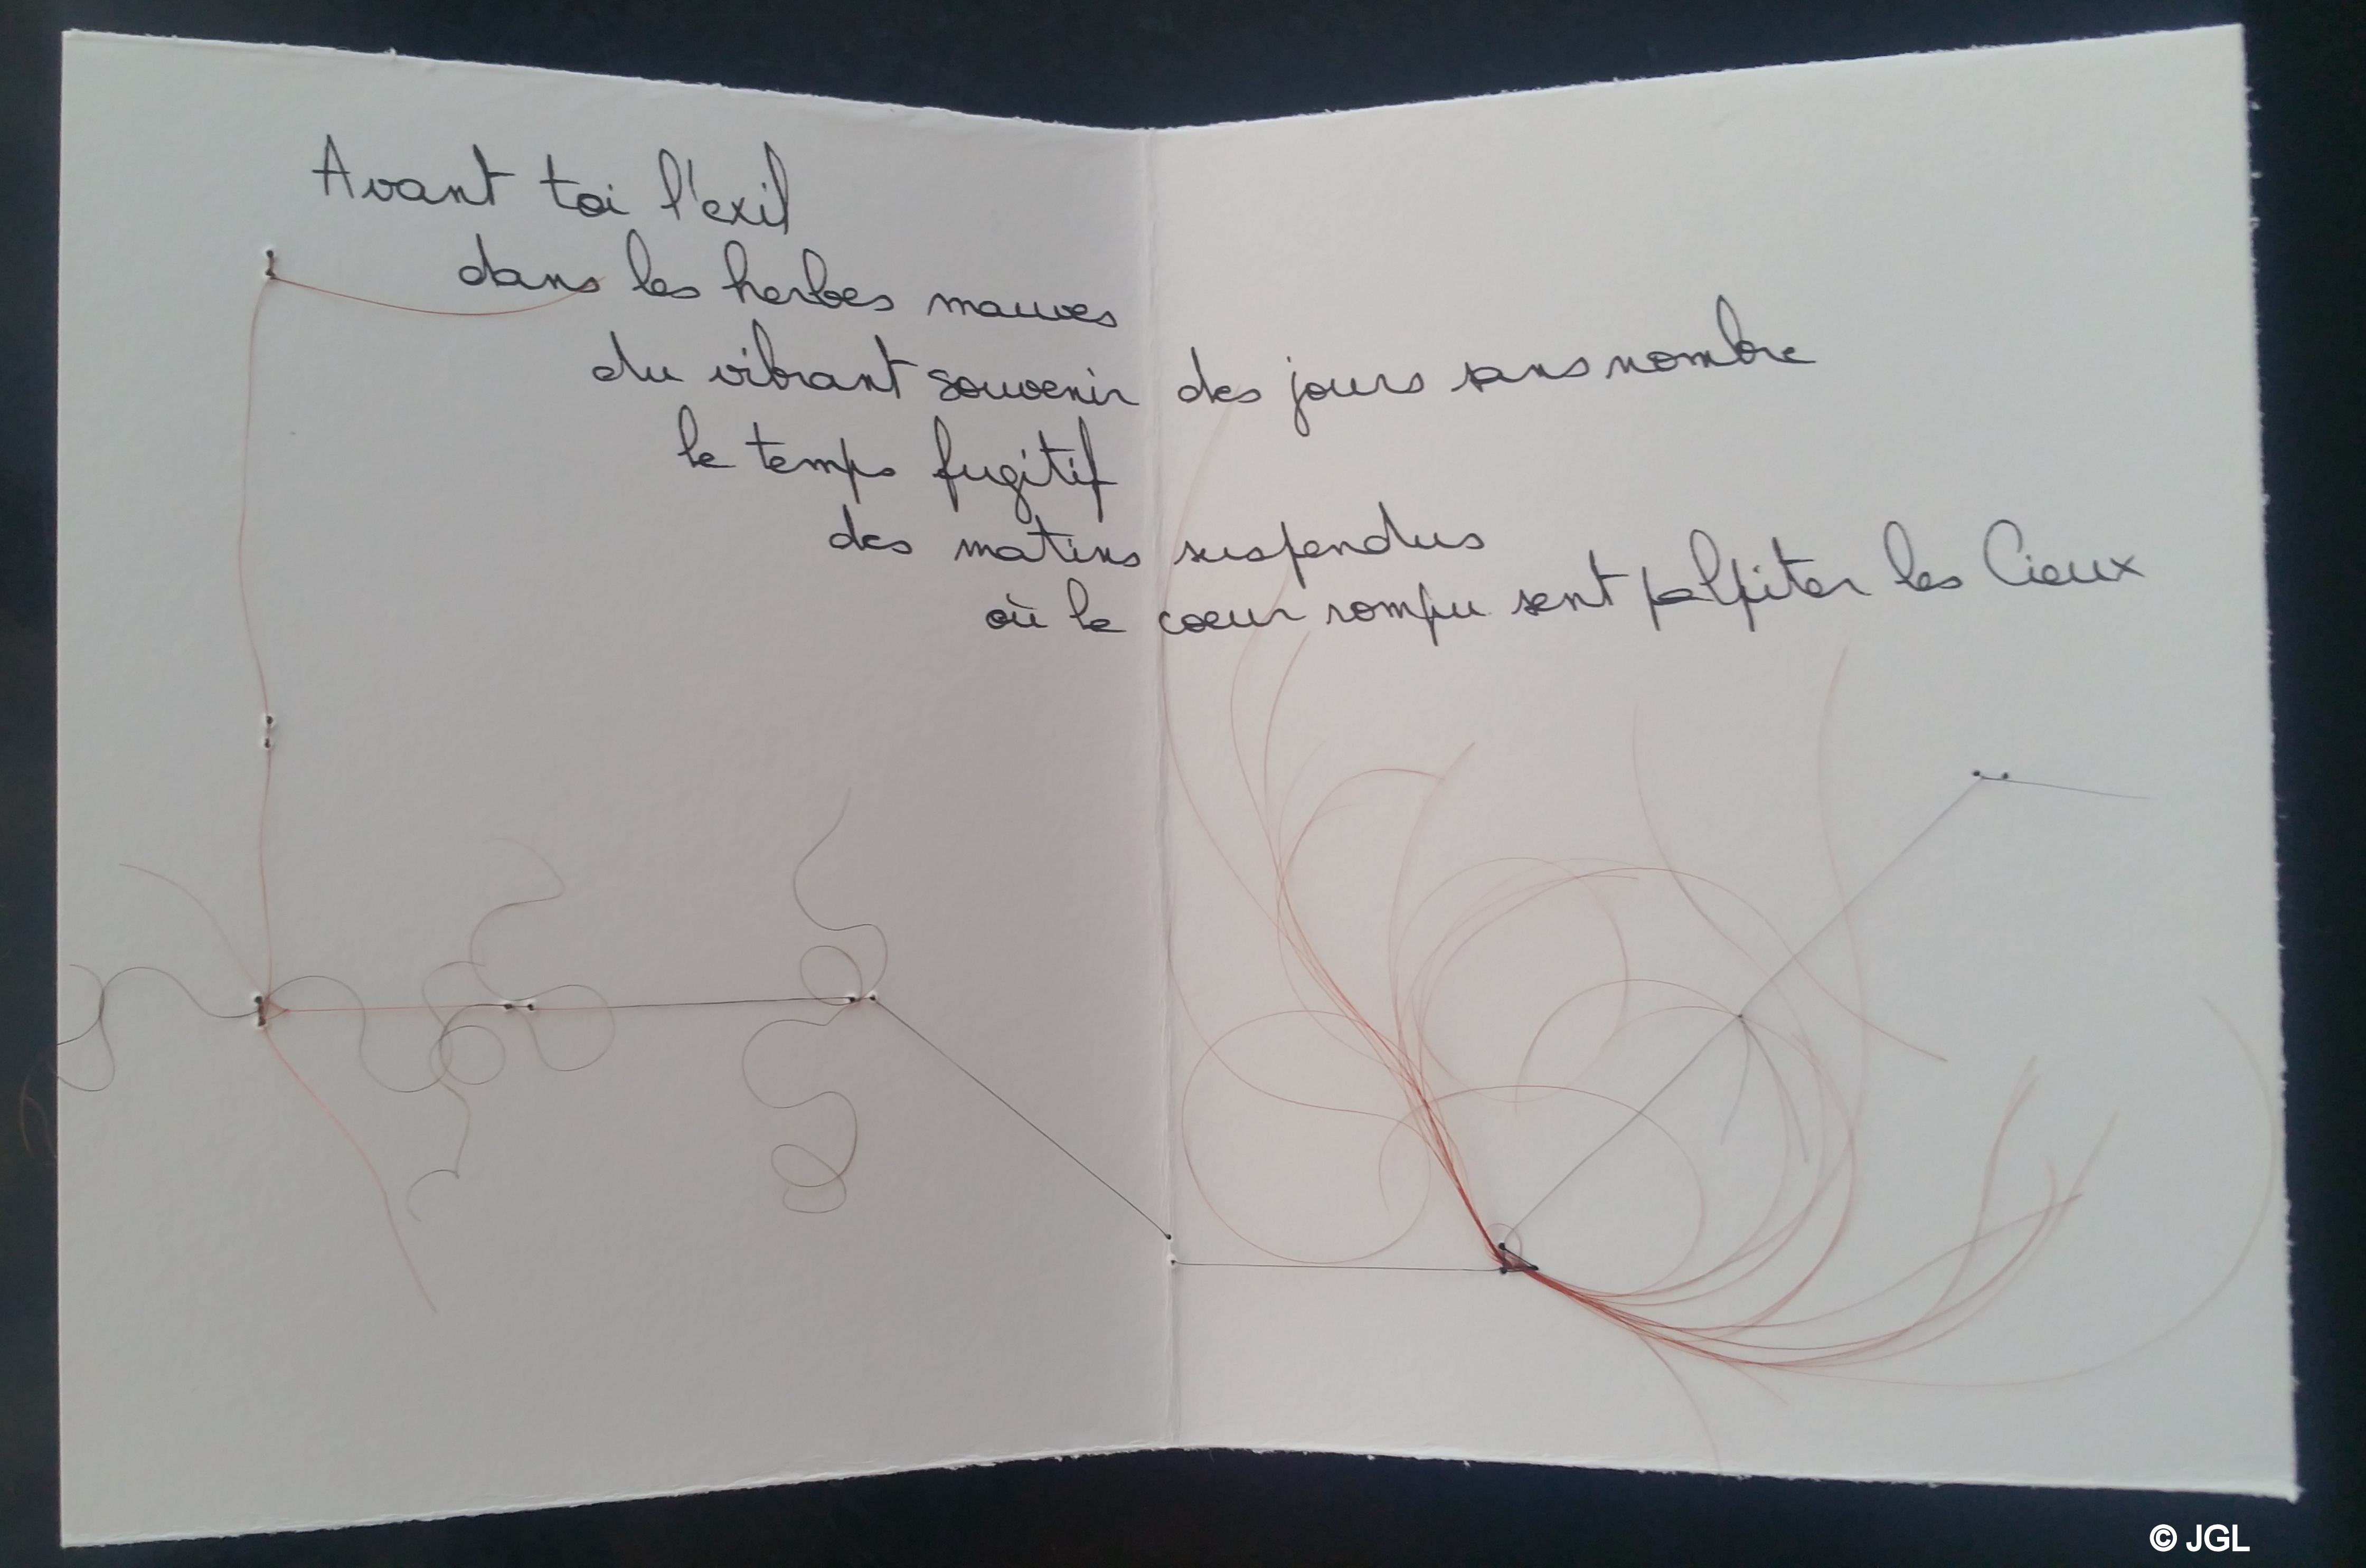 Avant toi l'exil
dans les herbes mauves
du vibrant souvenir des jours sans nombre
le temps fugitif
des matins suspendus
où le coeur rompu sent palpiter les Cieux
© JGL